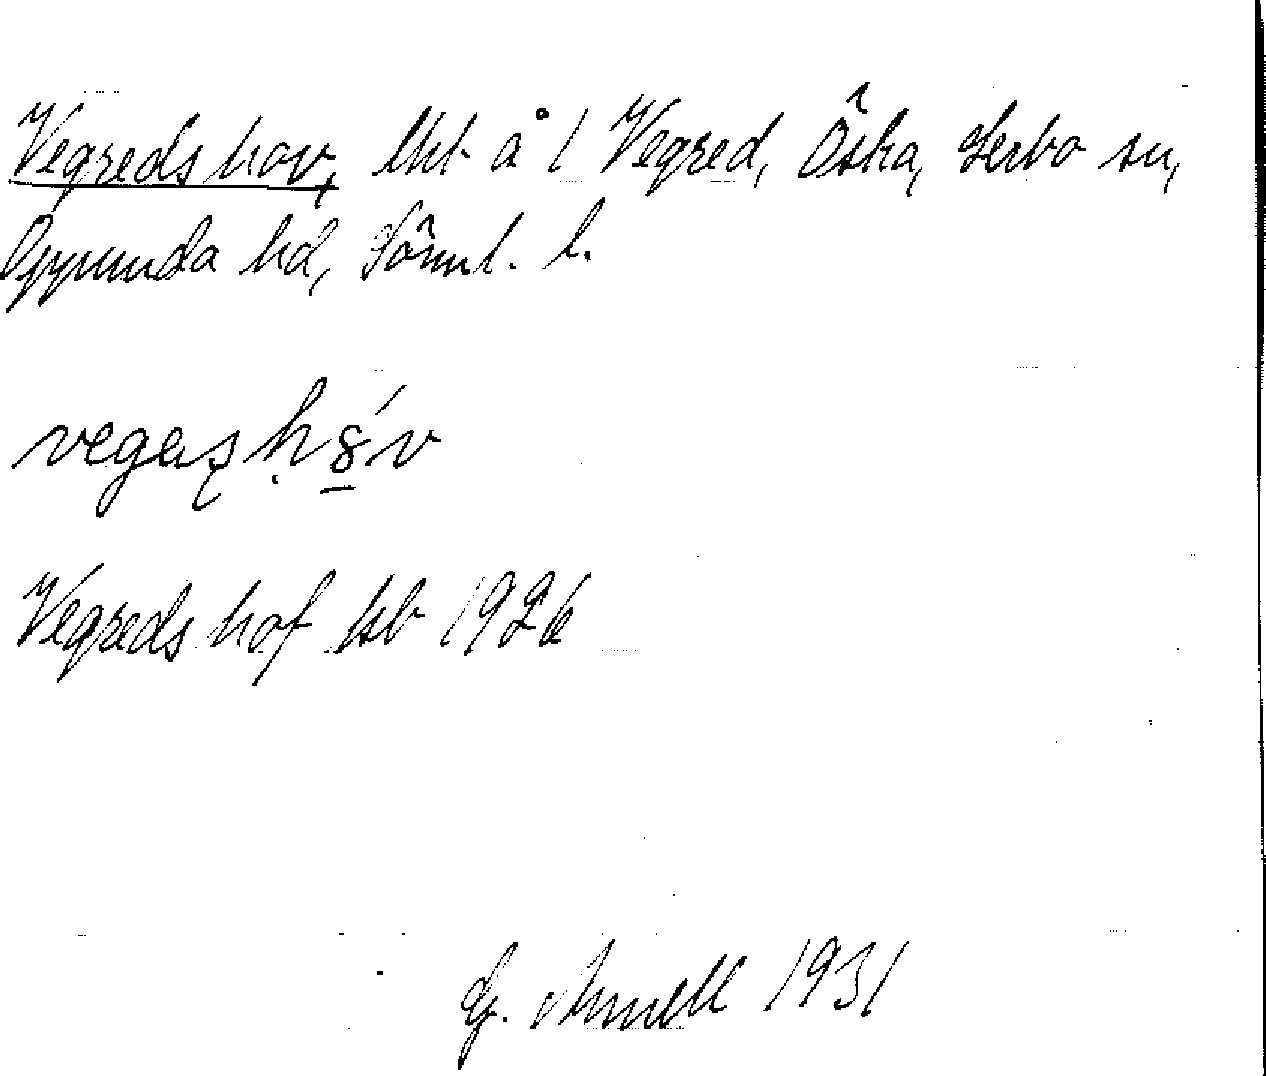 Vegreds hov, lht å 1 Vegred, Öska, Lerbo sn,
Oppunda hd, Söml. l.
Vegreds hof kb 1926
G. Arnell 1931